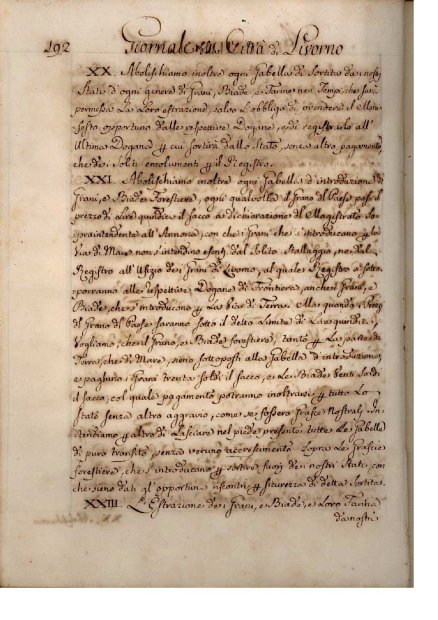 192 Giornale della Città di Livorno
XX. Abolischiamo inoltre ogni Gabella di Sortita da i nostri
Stati d'ogni genere di Grani, Biade, e Farine nei Tempi, che sarà
permessa la loro estrazione, salvo l'obbligo di prendere il Mani-
festo opportuno dalle respettive Dogane, e di registrarlo all'
Ultima Dogana p cui sortirà dallo Stato, senza altro pagamento
che de' soliti emolumenti p il Registro.
XXI. Abolischiamo inoltre ogni Gabella d'introduzione di
Grani, e Biade Forestiere, ogni qualvolta il Grano del Paese passi il
prezzo di Lire quindici il sacco a dichiarazione del Magistrato So-
praintendente all'Annona, con che i Grani che s'introducano p la
via di Mare non s'intendino esenti dal solito Stallaggio, ne dal
Registro all'Ufizio de i Grani di Livorno, al quale Registro si sotto-
porranno alle respettive Dogane di Frontiera anche i Grani, e
Biade, che s'introducono p la via di Terra. Ma quando i Prezzi
del Grano del Paese saranno sotto il detto Limite di Lire quindici,
Vogliamo, che il Grano, e Biade forestiere, tanto p la parte di
Terra, che di Mare, sieno sottoposti alla Gabella d'introduzione,
e paghino i Grani trenta soldi il sacco, e Le Biade venti Soldi
il sacco, col quale pagamento potranno inoltrarsi p tutto Lo
Stato senza altro aggravio, come se fossero Grasce Nostrali. In-
tendiamo p altro di Lasciare nel piede presente tutte Le Gabelle
di puro transito senza veruno accrescimento sopra Le Grascie
forestiere, che s'introducano p sortire fuori de i nostri Stati, con
che sieno dati gl'opportuni riscontri p sicurezza di detta Sortita.
XXIII. L'Estrazione de i Grani, e Biade, e Loro Farine
da nostri